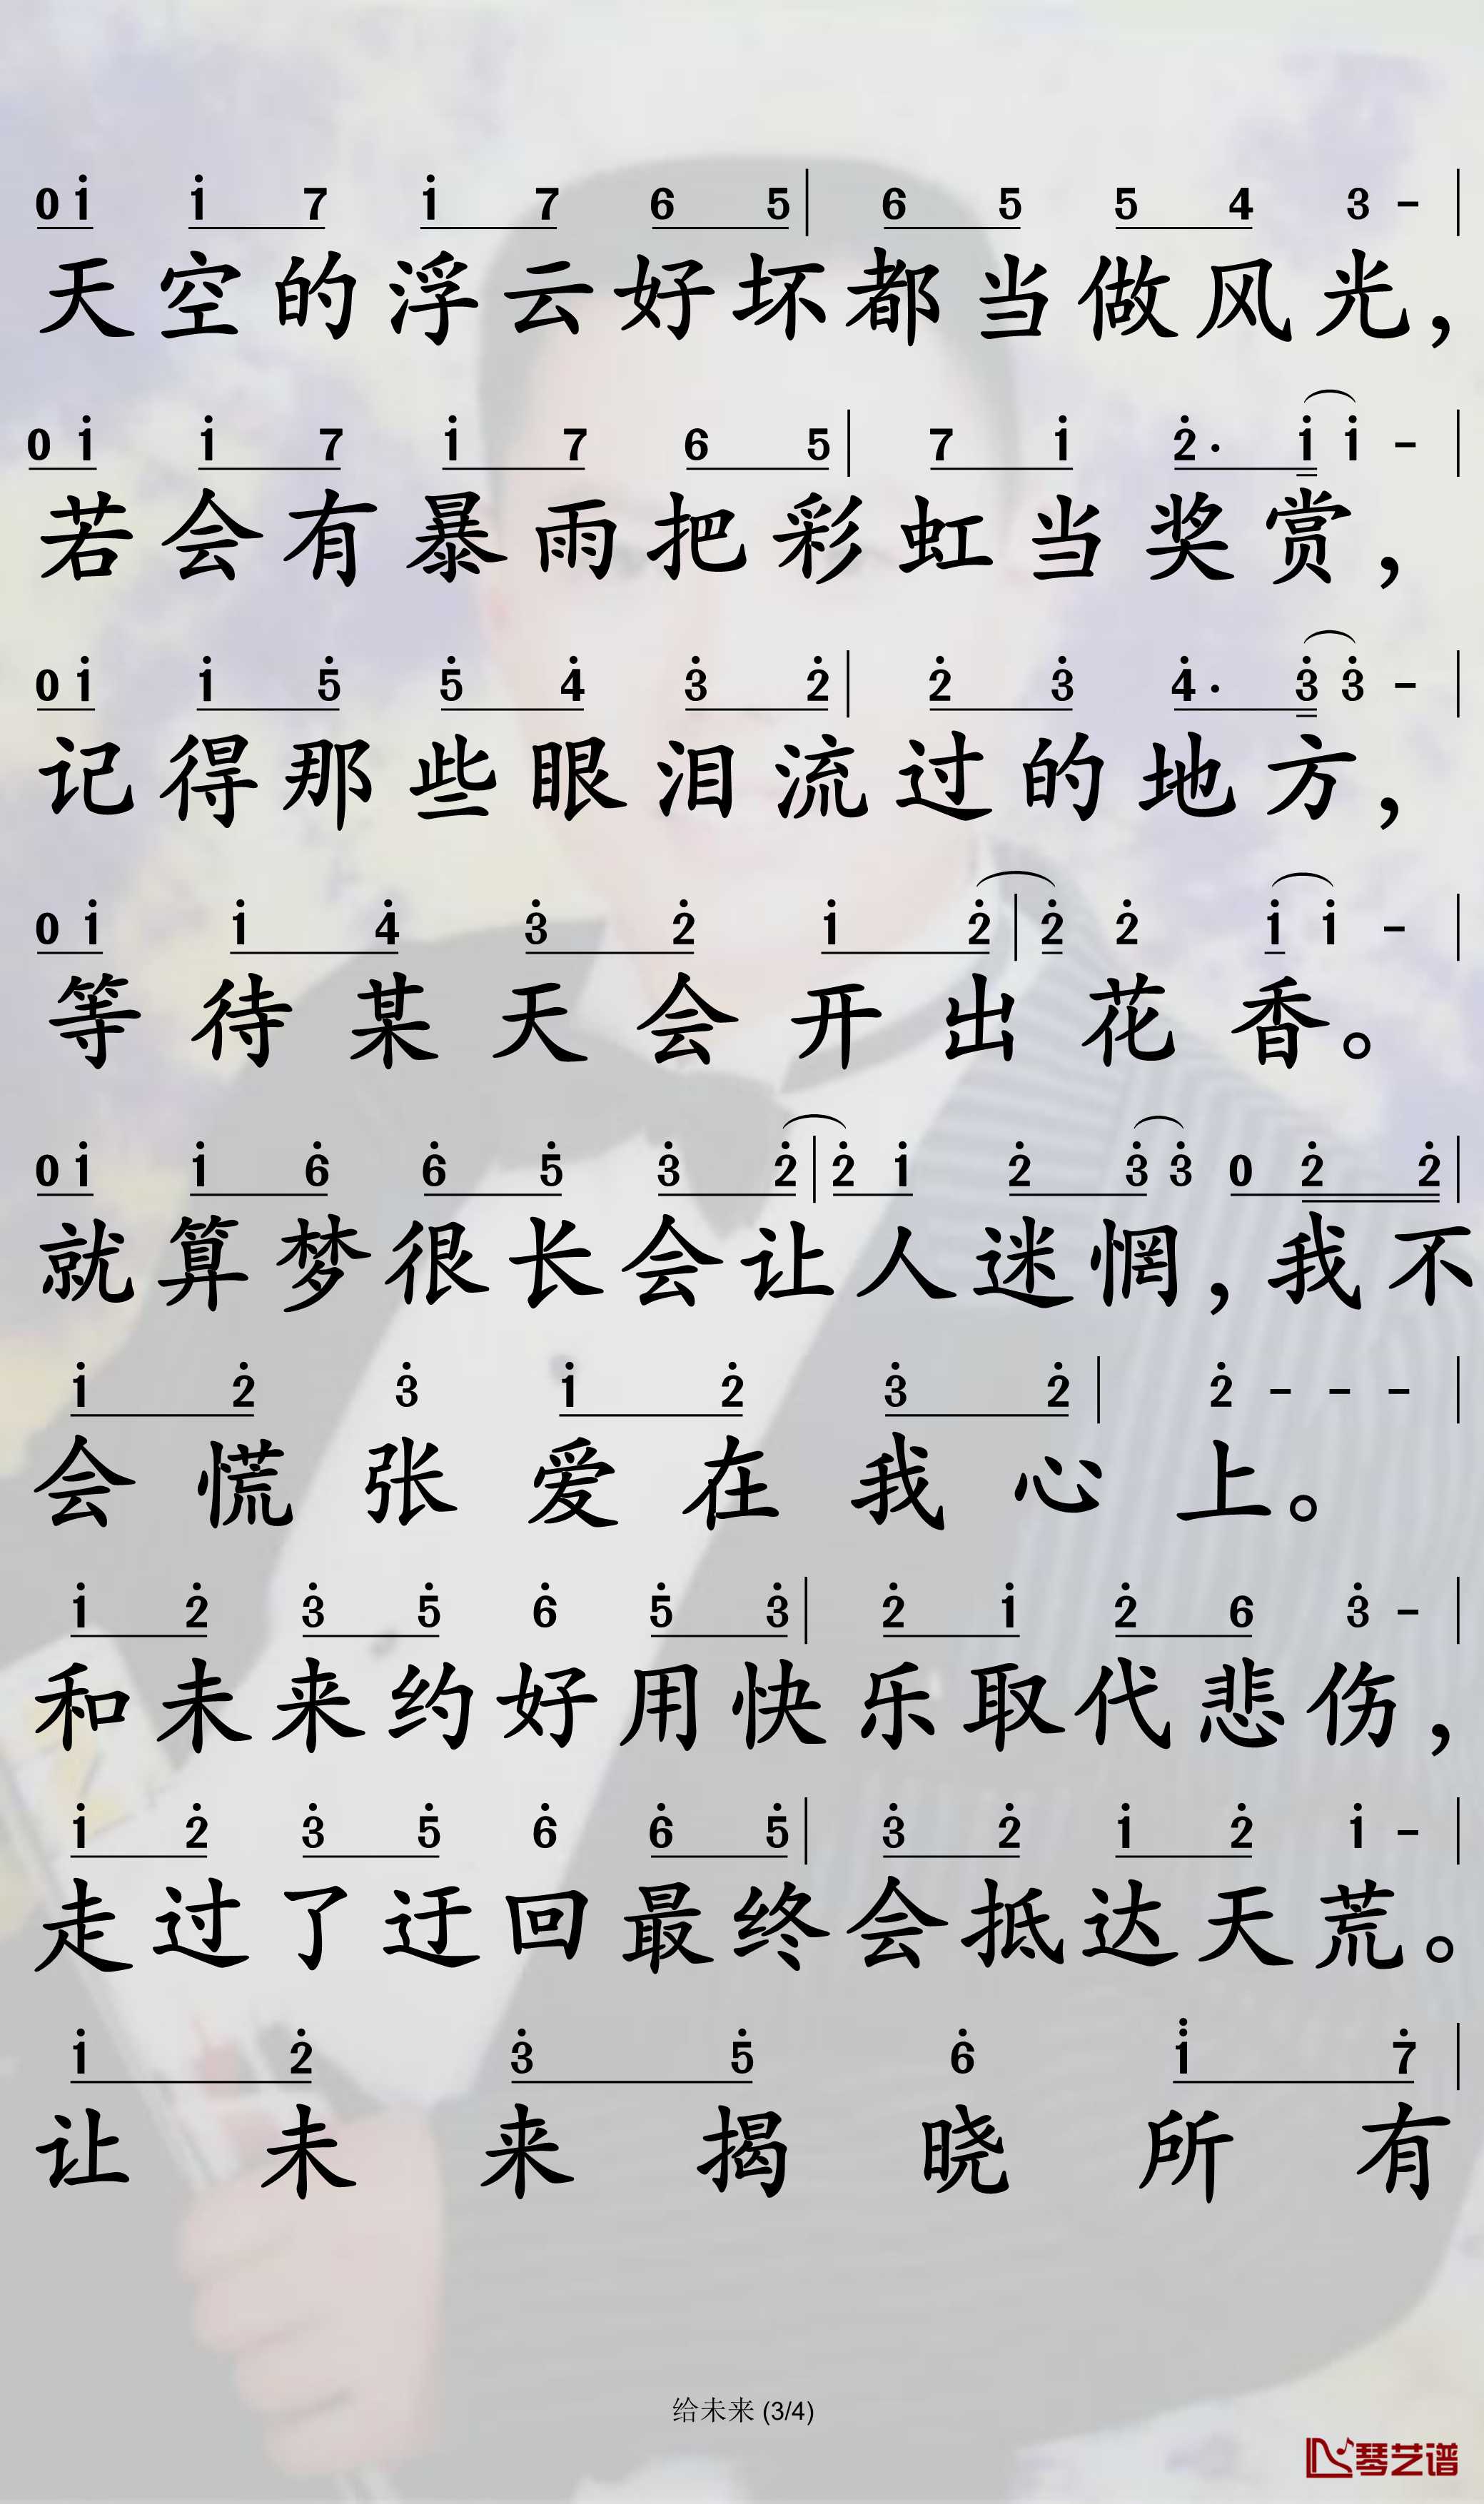 0 1̇ 1̇ 7 1̇ 7 6 5 | 6 5 5 4 3 - |
天空的浮云好坏都当做风光，
0 1̇ 1̇ 7 1̇ 7 6 5 | 7 1̇ 2̇· 1̇ 1̇ - |
若会有暴雨把彩虹当奖赏，
0 1̇ 1̇ 5̇ 5̇ 4̇ 3̇ 2̇ | 2̇ 3̇ 4̇· 3̇ 3̇ - |
记得那些眼泪流过的地方，
0 1̇ 1̇ 4̇ 3̇ 2̇ 1̇ 2̇ | 2̇ 2̇ 1̇ 1̇ - |
等待某天会开出花香。
0 1̇ 1̇ 6̇ 6̇ 5̇ 3̇ 2̇ | 2̇ 1̇ 2̇ 3̇ 3̇ 0 2̇ 2̇ |
就算梦很长会让人迷惘，我不
1̇ 2̇ 3̇ 1̇ 2̇ 3̇ 2̇ | 2̇ - - - |
会慌张爱在我心上。
1̇ 2̇ 3̇ 5̇ 6̇ 5̇ 3̇ | 2̇ 1̇ 2̇ 6 3̇ - |
和未来约好用快乐取代悲伤，
1̇ 2̇ 3̇ 5̇ 6̇ 6̇ 5̇ | 3̇ 2̇ 1̇ 2̇ 1̇ - |
走过了迂回最终会抵达天荒。
1̇ 2̇ 3̇ 5̇ 6̇ 1̈ 7̇ |
让未来揭晓所有
给未来 (3/4)
琴艺谱